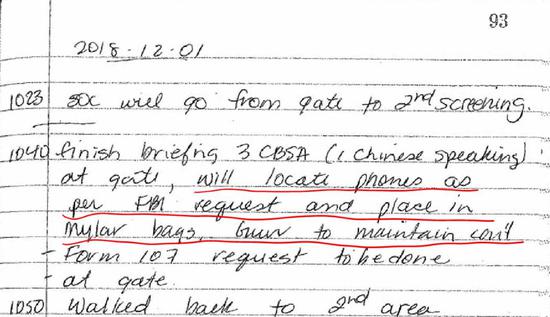 93
2018-12-01
1023 SOC will go from gate to 2nd screening.
1040 finish briefing 3 CBSA (1 Chinese speaking)
at gate, will locate phones as
per FBI request and place in
Mylar bags, to maintain
- Form 107 request to be done
- at gate.
1050 Walked back to 2nd area